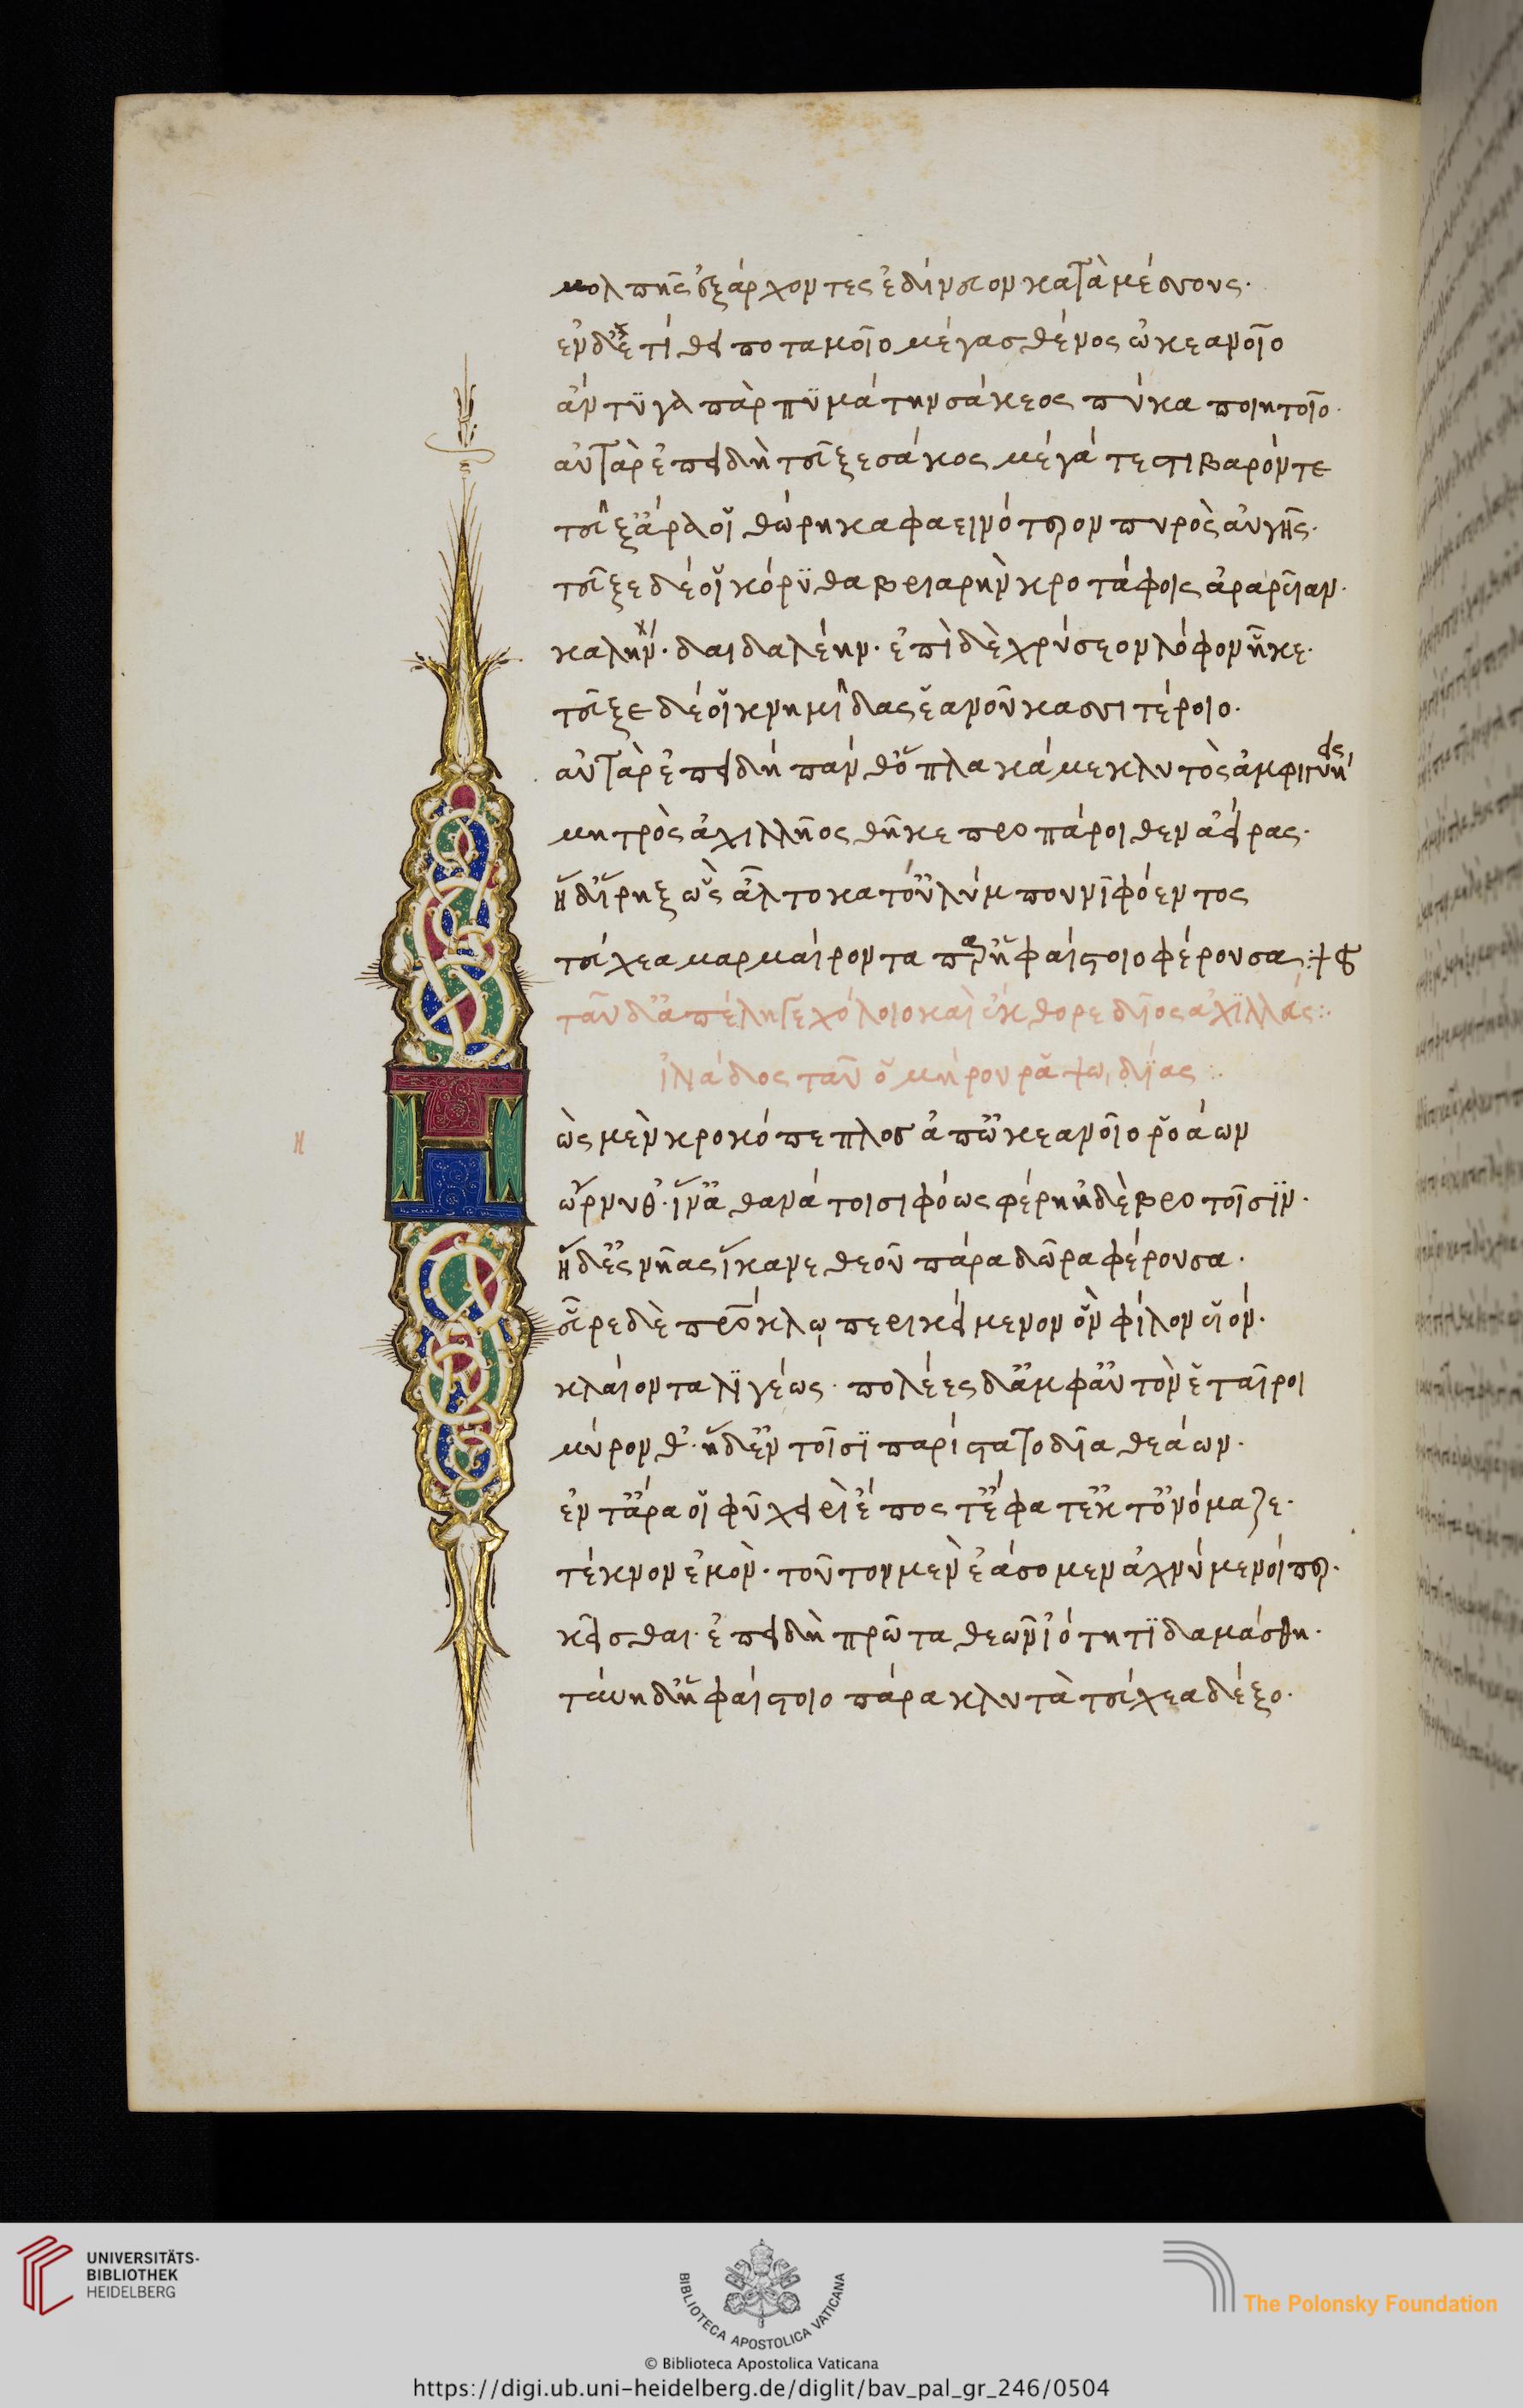 μολπῆς ἐξάρχοντες ἐδίνευον κατὰ μέσσους·
ἐν δ' ἐτίθει ποταμοῖο μέγα σθένος ὠκεανοῖο
ἄντυγα πὰρ πυμάτην σάκεος πύκα ποιητοῖο·
αὐτὰρ ἐπειδὴ τεῦξε σάκος μέγά τε στιβαρόν τε
τεῦξ' ἄρα οἱ θώρηκα φαεινότερον πυρὸς αὐγῆς·
τεῦξε δέ οἱ κόρϋθα βριαρὴν κροτάφοις ἀραρυῖαν·
καλήν· δαιδαλέην· ἐπὶ δὲ χρύσεον λόφον ἧκε·
τεῦξε δέ οἱ κνημῖδας ἑανοῦ κασσιτέροιο·
αὐτὰρ ἐπειδὴ πάνθ' ὅπλα κάμε κλυτὸς ἀμφιγυήεις
μητρὸς ἀχιλλῆος θῆκε προπάροιθεν ἀείρας·
ἡ δ' ἴρηξ ὣς ἆλτο κατ' οὐλύμπου νιφόεντος
τεύχεα μαρμαίροντα παρ' ἡφαίστοιο φέρουσα:
ταῦ δ' ἀπέληγε χόλοιο καὶ ἔκθορε δῖος ἀχϊλλεύς:
ἰλιάδος ταῦ ὁμήρου ῥαψωδίας:
Η
ὡς μὲν κροκόπεπλος ἀπ' ὠκεανοῖο ῥοάων
ὤρνυθ'· ἵν' ἀθανάτοισι φόως φέρη ἠδὲ βροτοῖσϊν·
ἡ δ' ἐς νῆας ἵκανε θεοῦ πάρα δῶρα φέρουσα·
εὗρε δὲ πατρόκλῳ περικείμενον ὃν φίλον υἱόν·
κλαίοντα λϊγέως· πολέες δ' ἀμφ' αὐτὸν ἑταῖροι
μύρονθ'· ἡ δ' ἐν τοῖσϊ παρίστατο δῖα θεάων·
ἐν τ' ἄρα οἱ φῦ χειρὶ ἔπος τ' ἔφατ' ἔκ τ' ὀνόμαζε·
τέκνον ἐμὸν· τοῦτον μὲν ἐάσομεν ἀχνύμενοί περ·
κεῖσθαι· ἐπειδὴ πρῶτα θεῶν ἰότητϊ δαμάσθη·
τύνη δ' ἡφαίστοιο πάρα κλυτὰ τεύχεα δέξο·
UNIVERSITÄTS-
BIBLIOTHEK
HEIDELBERG
BIBLIOTECA APOSTOLICA VATICANA
The Polonsky Foundation
© Biblioteca Apostolica Vaticana
https://digi.ub.uni-heidelberg.de/diglit/bav_pal_gr_246/0504